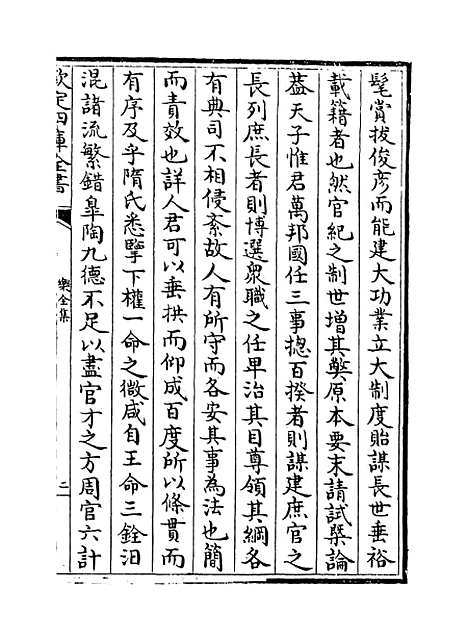 髦賞拔俊彦而能建大功業立大制度貽謀長世垂裕
載籍者也然官紀之制世增其弊原本要末請試槩論
葢天子惟君萬邦國任三事揔百揆者則謀建庶官之
長列庶長者則博選衆職之任卑治其目尊領其綱各
有典司不相侵紊故人有所守而各安其事為法也簡
而責效也詳人君可以垂拱而仰成百度所以條貫而
有序及乎隋氏悉擥下權一命之微咸自王命三銓汩
混諸流繁錯臯陶九德不足以盡官才之方周官六計
欽定四庫全書
樂全集
二